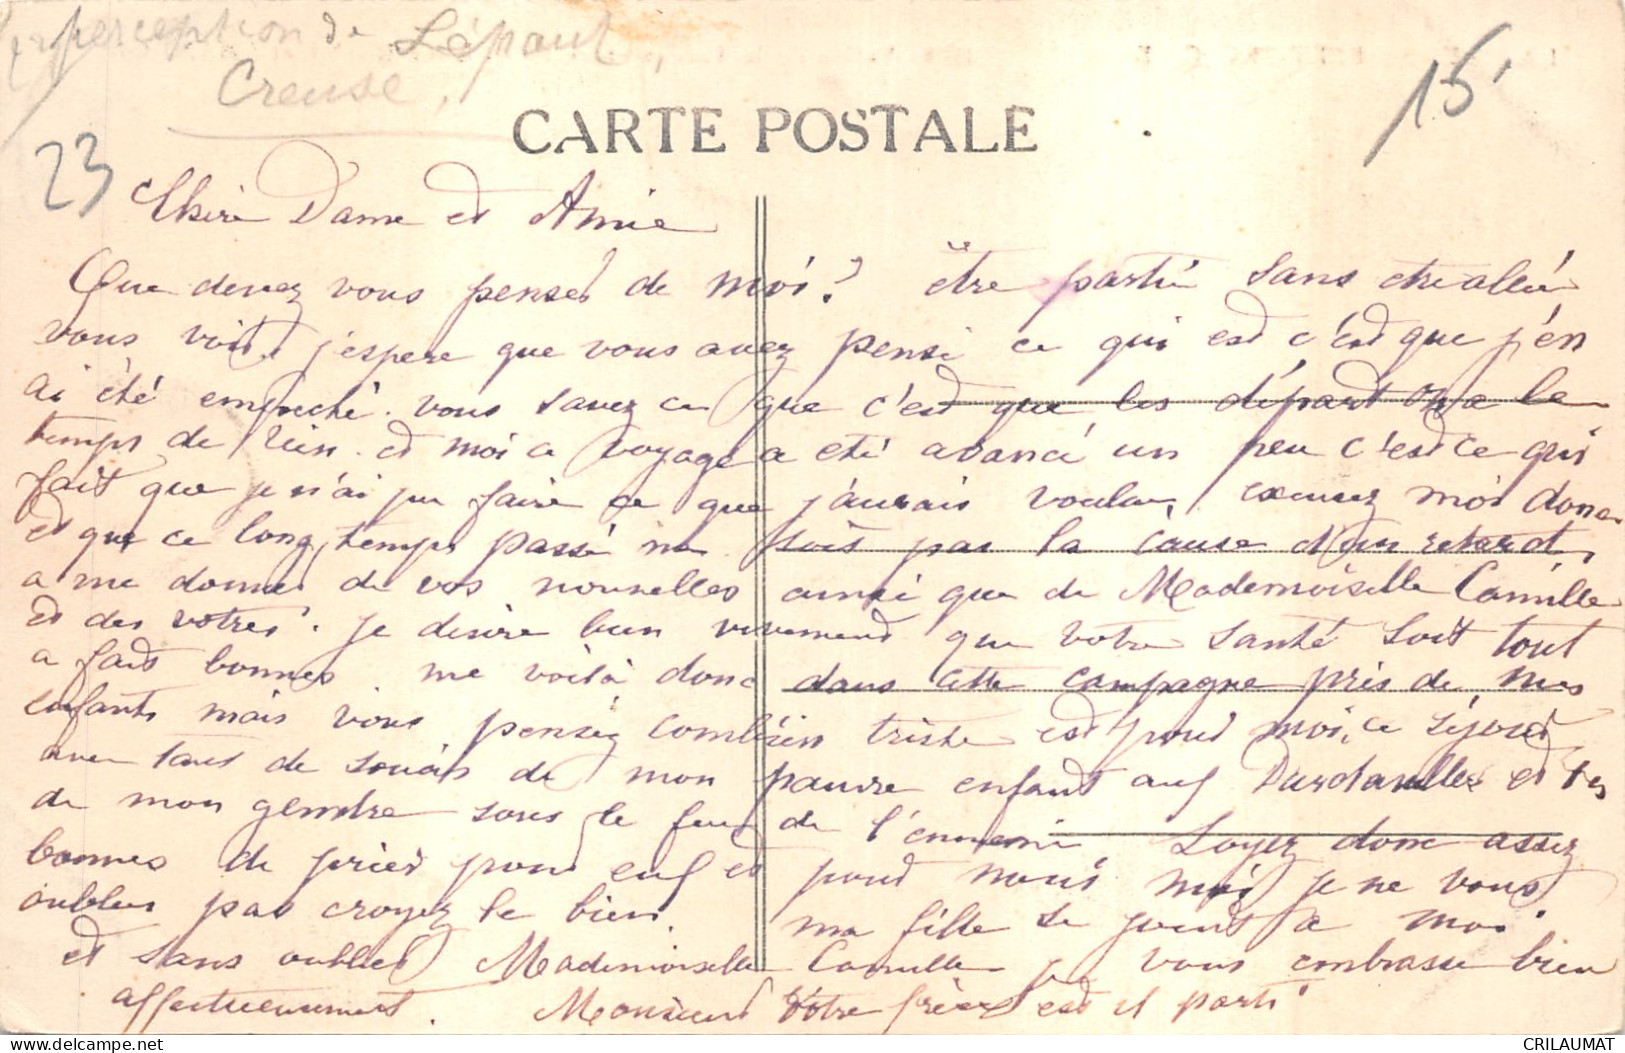 perception de Lépaud
Creuse,
15
23
CARTE POSTALE
Chère Dame et Amie
Que devez vous penser de moi? être partie sans etre allée
vous voir, j'espere que vous avez pensé ce qui est c'est que j'en
ai été empeché. vous savez ce que c'est que les départ on a le
temps de rien. et moi ce voyage a eté avancé un peu c'est ce qui
fait que je n'ai pu faire ce que j'aurais voulu, excusez moi donc
et que ce long temps passé ne sois pas la cause d'un retard,
a me donner de vos nouvelles ainsi que de Mademoiselle Camille
et des votres. Je desire bien vivement que votre santé soit tout
a fait bonnes. me voilà donc dans cette campagne près de mes
enfants mais vous pensez combien triste est pour moi, ce séjour
avec tous de soucis de mon pauvre enfant aux Dardanelles et ses
de mon gendre sous le feu de l'ennemi Soyez donc assez
bonnes de prier pour eux et pour nous moi je ne vous
oublies pas croyez le bien. ma fille se joint a moi
et sans oublier Mademoiselle Camille je vous embrasse bien
affectueusement. Monsieur Votre frère est il parti
CRILAUMAT